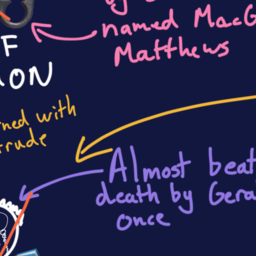 named Mac
Matthews
F
ON
ned with
rude
Almost beat
death by Gera
once